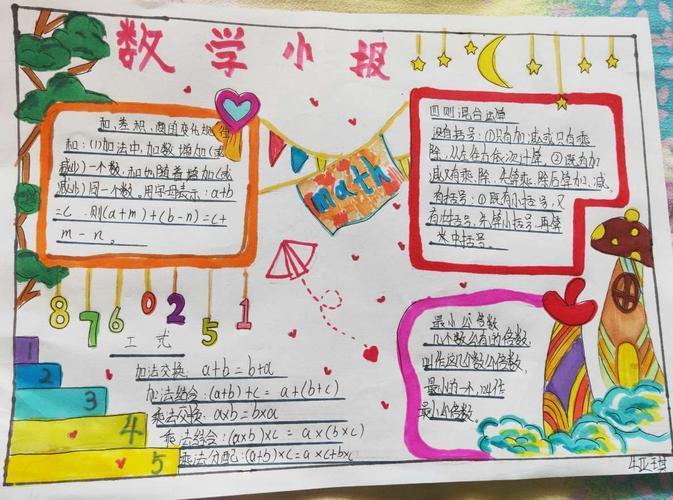 数学小报
和、差、积、商的变化规律
和:(1)加法中,加数增加(或
减少)一个数,和也随着增加(或
减少)同一个数。用字母表示:a+b
=c,则(a+m)+(b-n)=c+
m-n。
math
四则混合运算
没有括号:①只有加、减或只有乘
除,从左往右依次计算。②既有加
减又有乘、除,先算乘、除后算加、减。
有括号:①既有小括号,又
有中括号,先算小括号,再算
中括号。
8 7 6 0 2 5 1
公式
加法交换:a+b=b+a
加法结合:(a+b)+c=a+(b+c)
乘法交换:a×b=b×a
乘法结合:(a×b)×c=a×(b×c)
乘法分配:(a+b)×c=a×c+b×c
1
2
3
4
5
最小公倍数
几个数公有的倍数,
叫作这几个数公倍数,
最小的一个,叫作
最小公倍数。